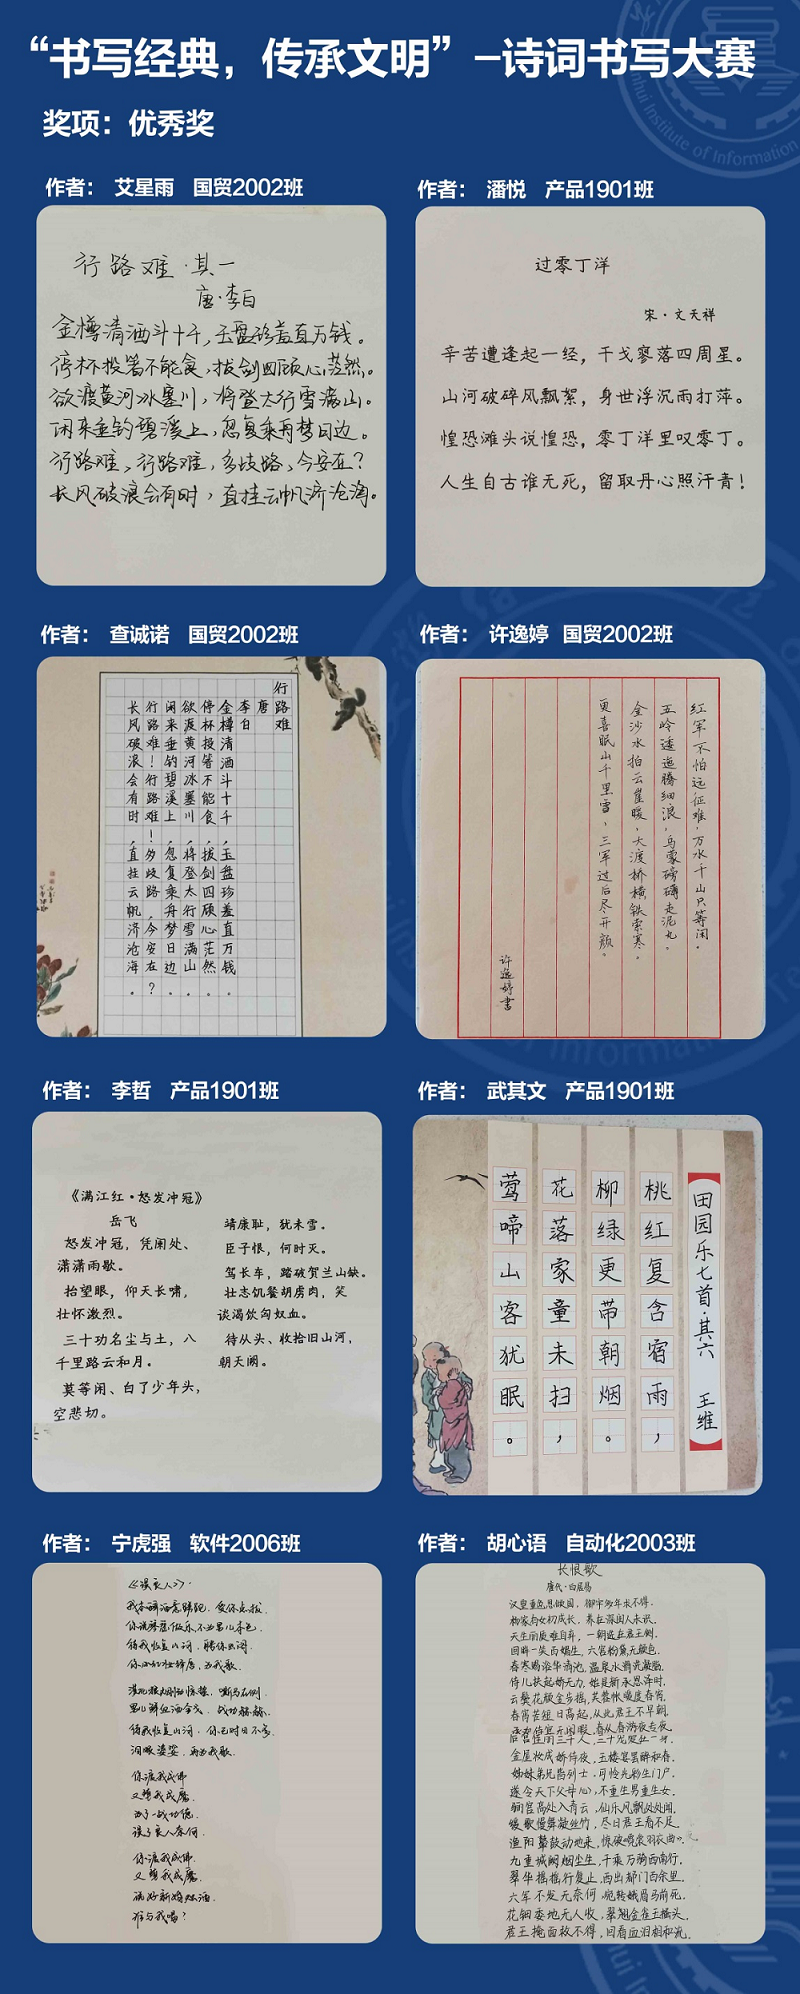 “书写经典，传承文明”–诗词书写大赛
奖项：优秀奖
作者： 艾星雨 国贸2002班
行路难·其一
唐·李白
金樽清酒斗十千，玉盘珍羞直万钱。
停杯投箸不能食，拔剑四顾心茫然。
欲渡黄河冰塞川，将登太行雪满山。
闲来垂钓碧溪上，忽复乘舟梦日边。
行路难，行路难，多歧路，今安在？
长风破浪会有时，直挂云帆济沧海。
作者： 潘悦 产品1901班
过零丁洋
宋·文天祥
辛苦遭逢起一经，干戈寥落四周星。
山河破碎风飘絮，身世浮沉雨打萍。
惶恐滩头说惶恐，零丁洋里叹零丁。
人生自古谁无死，留取丹心照汗青！
作者： 查诚诺 国贸2002班
行路难
唐
李白
金樽清酒斗十千，玉盘珍羞直万钱。
停杯投箸不能食，拔剑四顾心茫然。
欲渡黄河冰塞川，将登太行雪满山。
闲来垂钓碧溪上，忽复乘舟梦日边。
行路难！行路难！多歧路，今安在？
长风破浪会有时，直挂云帆济沧海。
作者： 许逸婷 国贸2002班
红军不怕远征难，万水千山只等闲。
五岭逶迤腾细浪，乌蒙磅礴走泥丸。
金沙水拍云崖暖，大渡桥横铁索寒。
更喜岷山千里雪，三军过后尽开颜。
许逸婷书
作者： 李哲 产品1901班
《满江红·怒发冲冠》
岳飞
怒发冲冠，凭阑处、
潇潇雨歇。
抬望眼，仰天长啸，
壮怀激烈。
三十功名尘与土，八
千里路云和月。
莫等闲、白了少年头，
空悲切。
靖康耻，犹未雪。
臣子恨，何时灭。
驾长车，踏破贺兰山缺。
壮志饥餐胡虏肉，笑
谈渴饮匈奴血。
待从头、收拾旧山河，
朝天阙。
作者： 武其文 产品1901班
田园乐七首·其六 王维
桃红复含宿雨，
柳绿更带朝烟。
花落家童未扫，
莺啼山客犹眠。
作者： 宁虎强 软件2006班
《误良人》
你渡我成佛
又塑我成魔
误了良人奈何
你渡我成佛
又塑我成魔
谁与我喝？
作者： 胡心语 自动化2003班
长恨歌
唐代·白居易
汉皇重色思倾国，御宇多年求不得。
杨家有女初成长，养在深闺人未识。
天生丽质难自弃，一朝选在君王侧。
回眸一笑百媚生，六宫粉黛无颜色。
春寒赐浴华清池，温泉水滑洗凝脂。
侍儿扶起娇无力，始是新承恩泽时。
云鬓花颜金步摇，芙蓉帐暖度春宵。
春宵苦短日高起，从此君王不早朝。
承欢侍宴无闲暇，春从春游夜专夜。
后宫佳丽三千人，三千宠爱在一身。
金屋妆成娇侍夜，玉楼宴罢醉和春。
姊妹弟兄皆列士，可怜光彩生门户。
遂令天下父母心，不重生男重生女。
骊宫高处入青云，仙乐风飘处处闻。
缓歌慢舞凝丝竹，尽日君王看不足。
渔阳鼙鼓动地来，惊破霓裳羽衣曲。
九重城阙烟尘生，千乘万骑西南行。
翠华摇摇行复止，西出都门百余里。
六军不发无奈何，宛转蛾眉马前死。
花钿委地无人收，翠翘金雀玉搔头。
君王掩面救不得，回看血泪相和流。